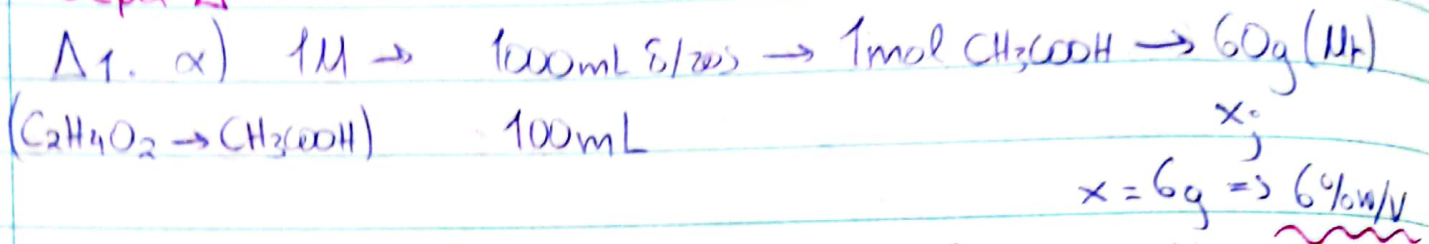 Δ1. α) 1M → 1000mL δ/τος → 1mol CH3COOH → 60g (Mr)
(C2H4O2 → CH3COOH) 100mL x;
x = 6g => 6%w/v